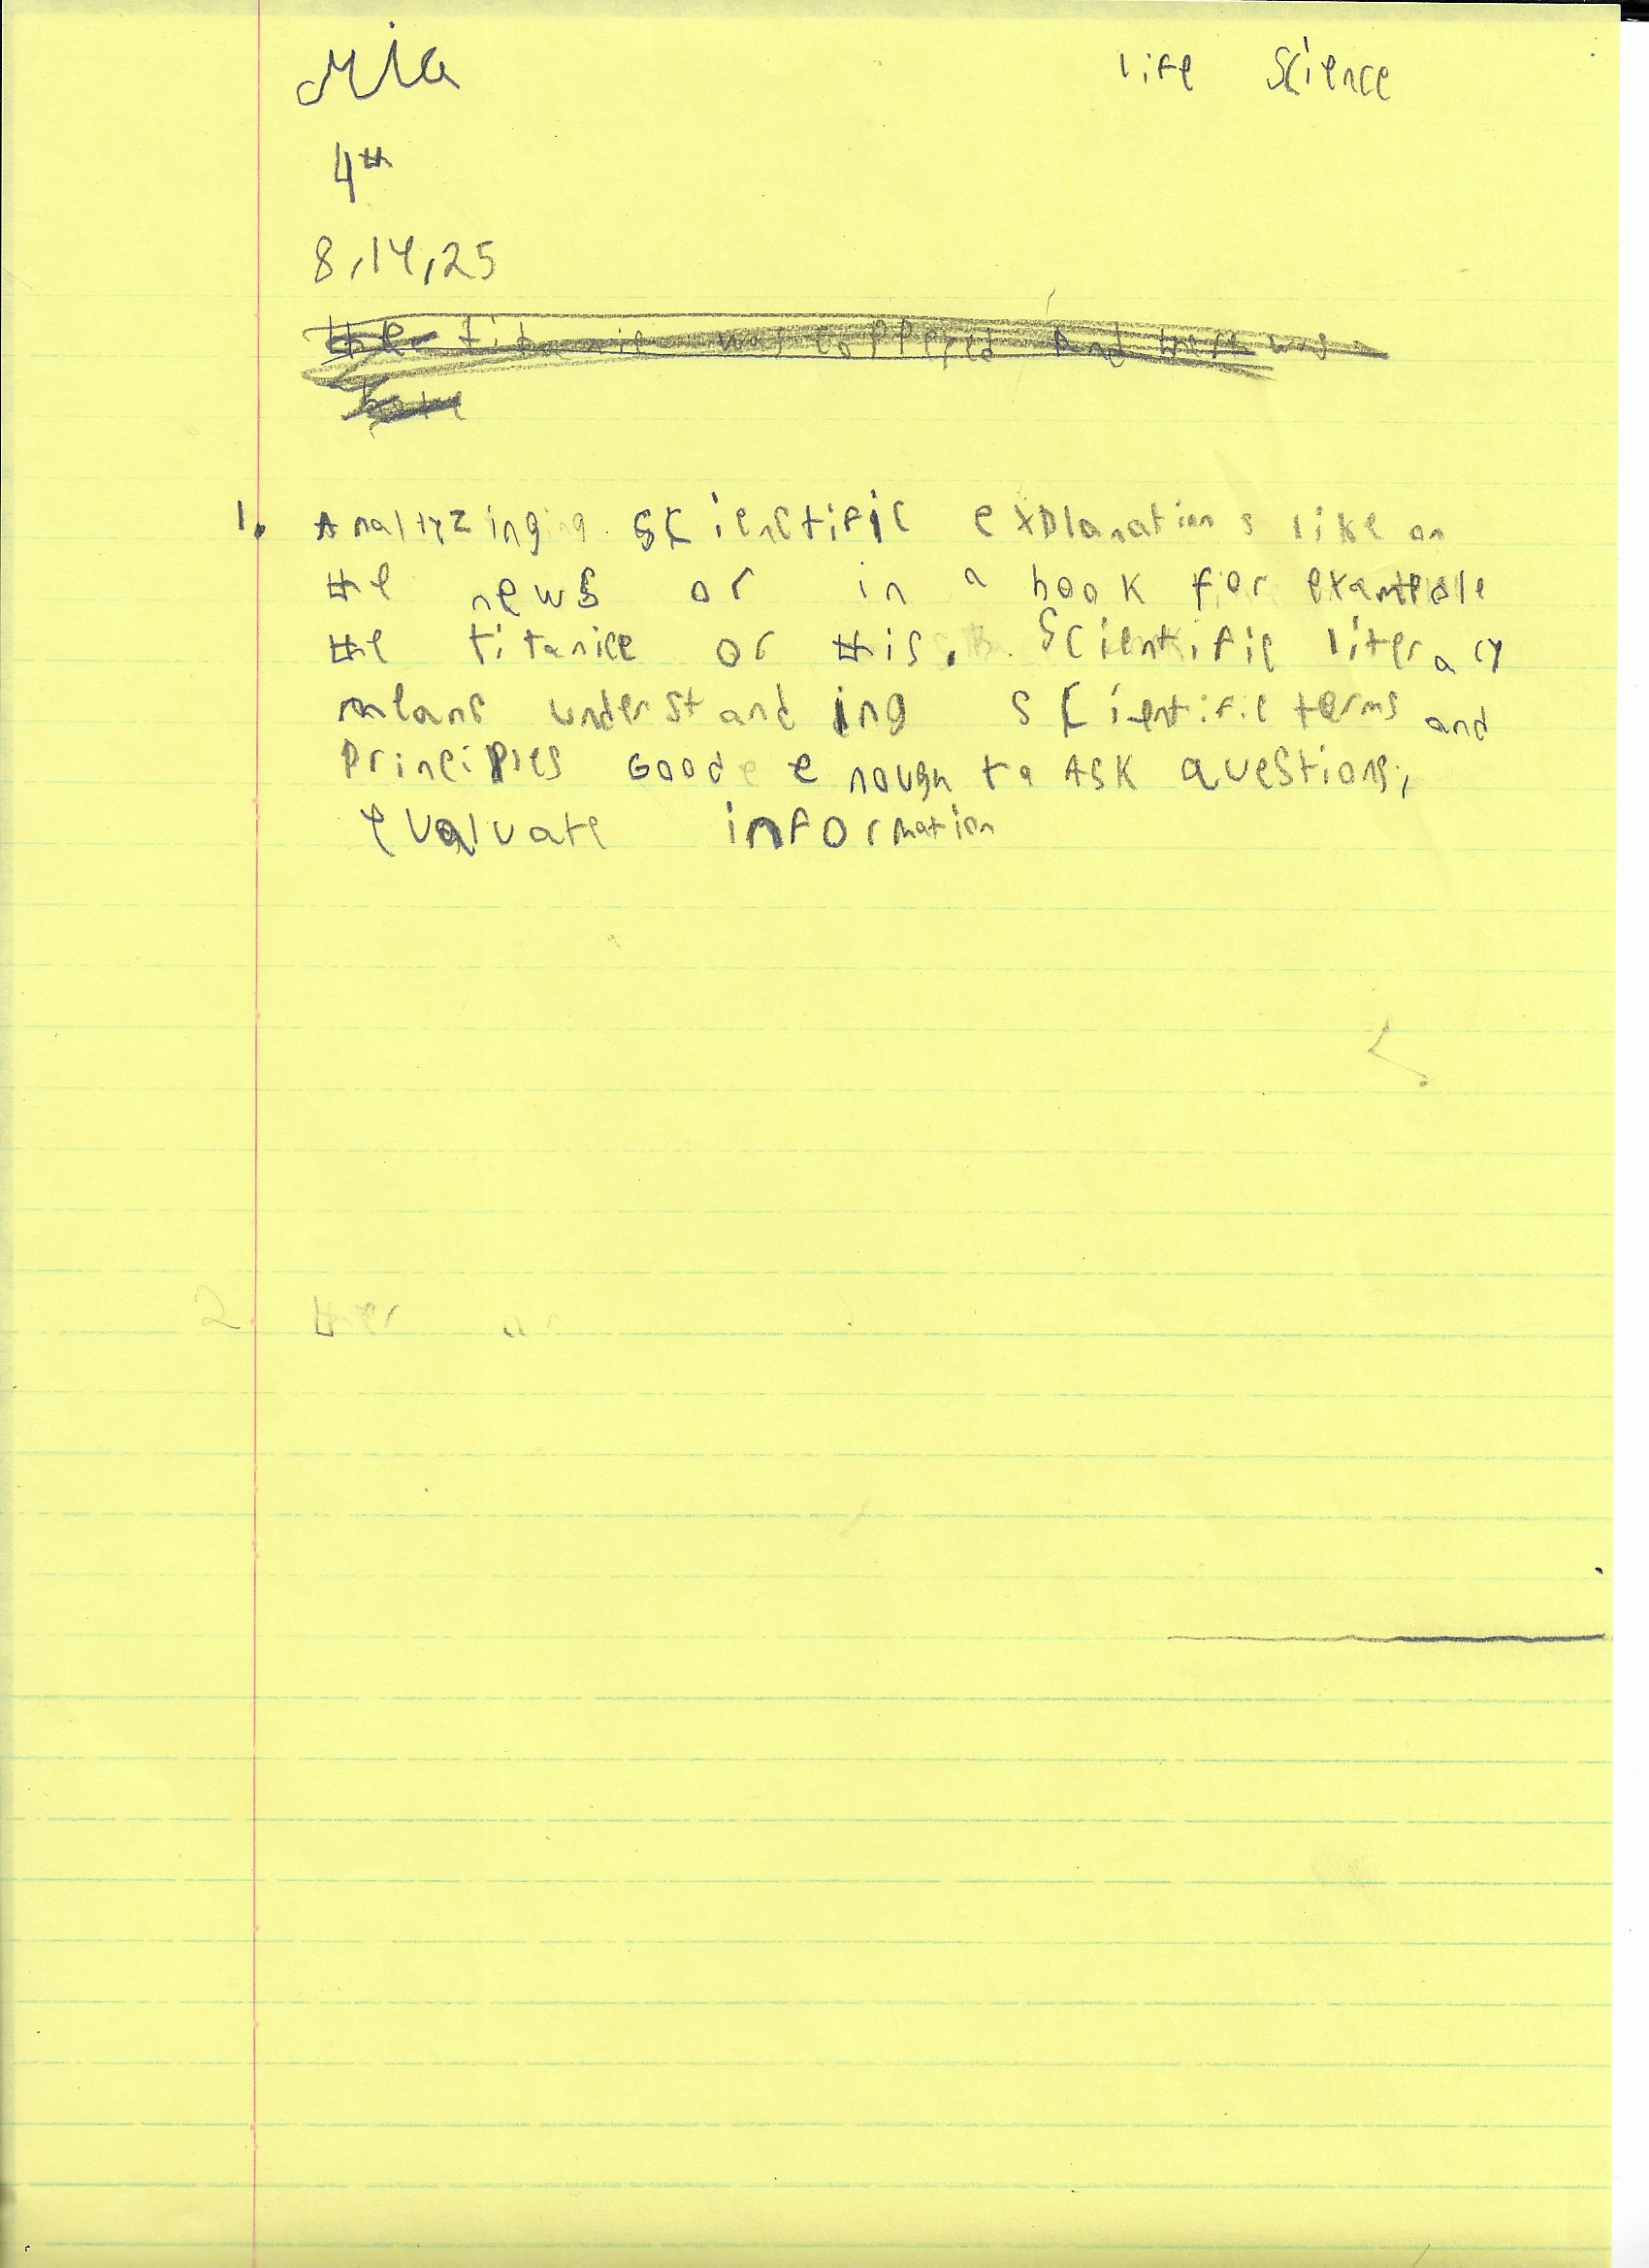 Mia Life Science
4th
8,14,25
the titanic was And was
1. Analtyzing scienctific explanations like on
the news or in a book for example
the titanice or this. Scientific literacy
means understanding scientific terms and
principles Good enough to ASK questions,
evaluate information
2.